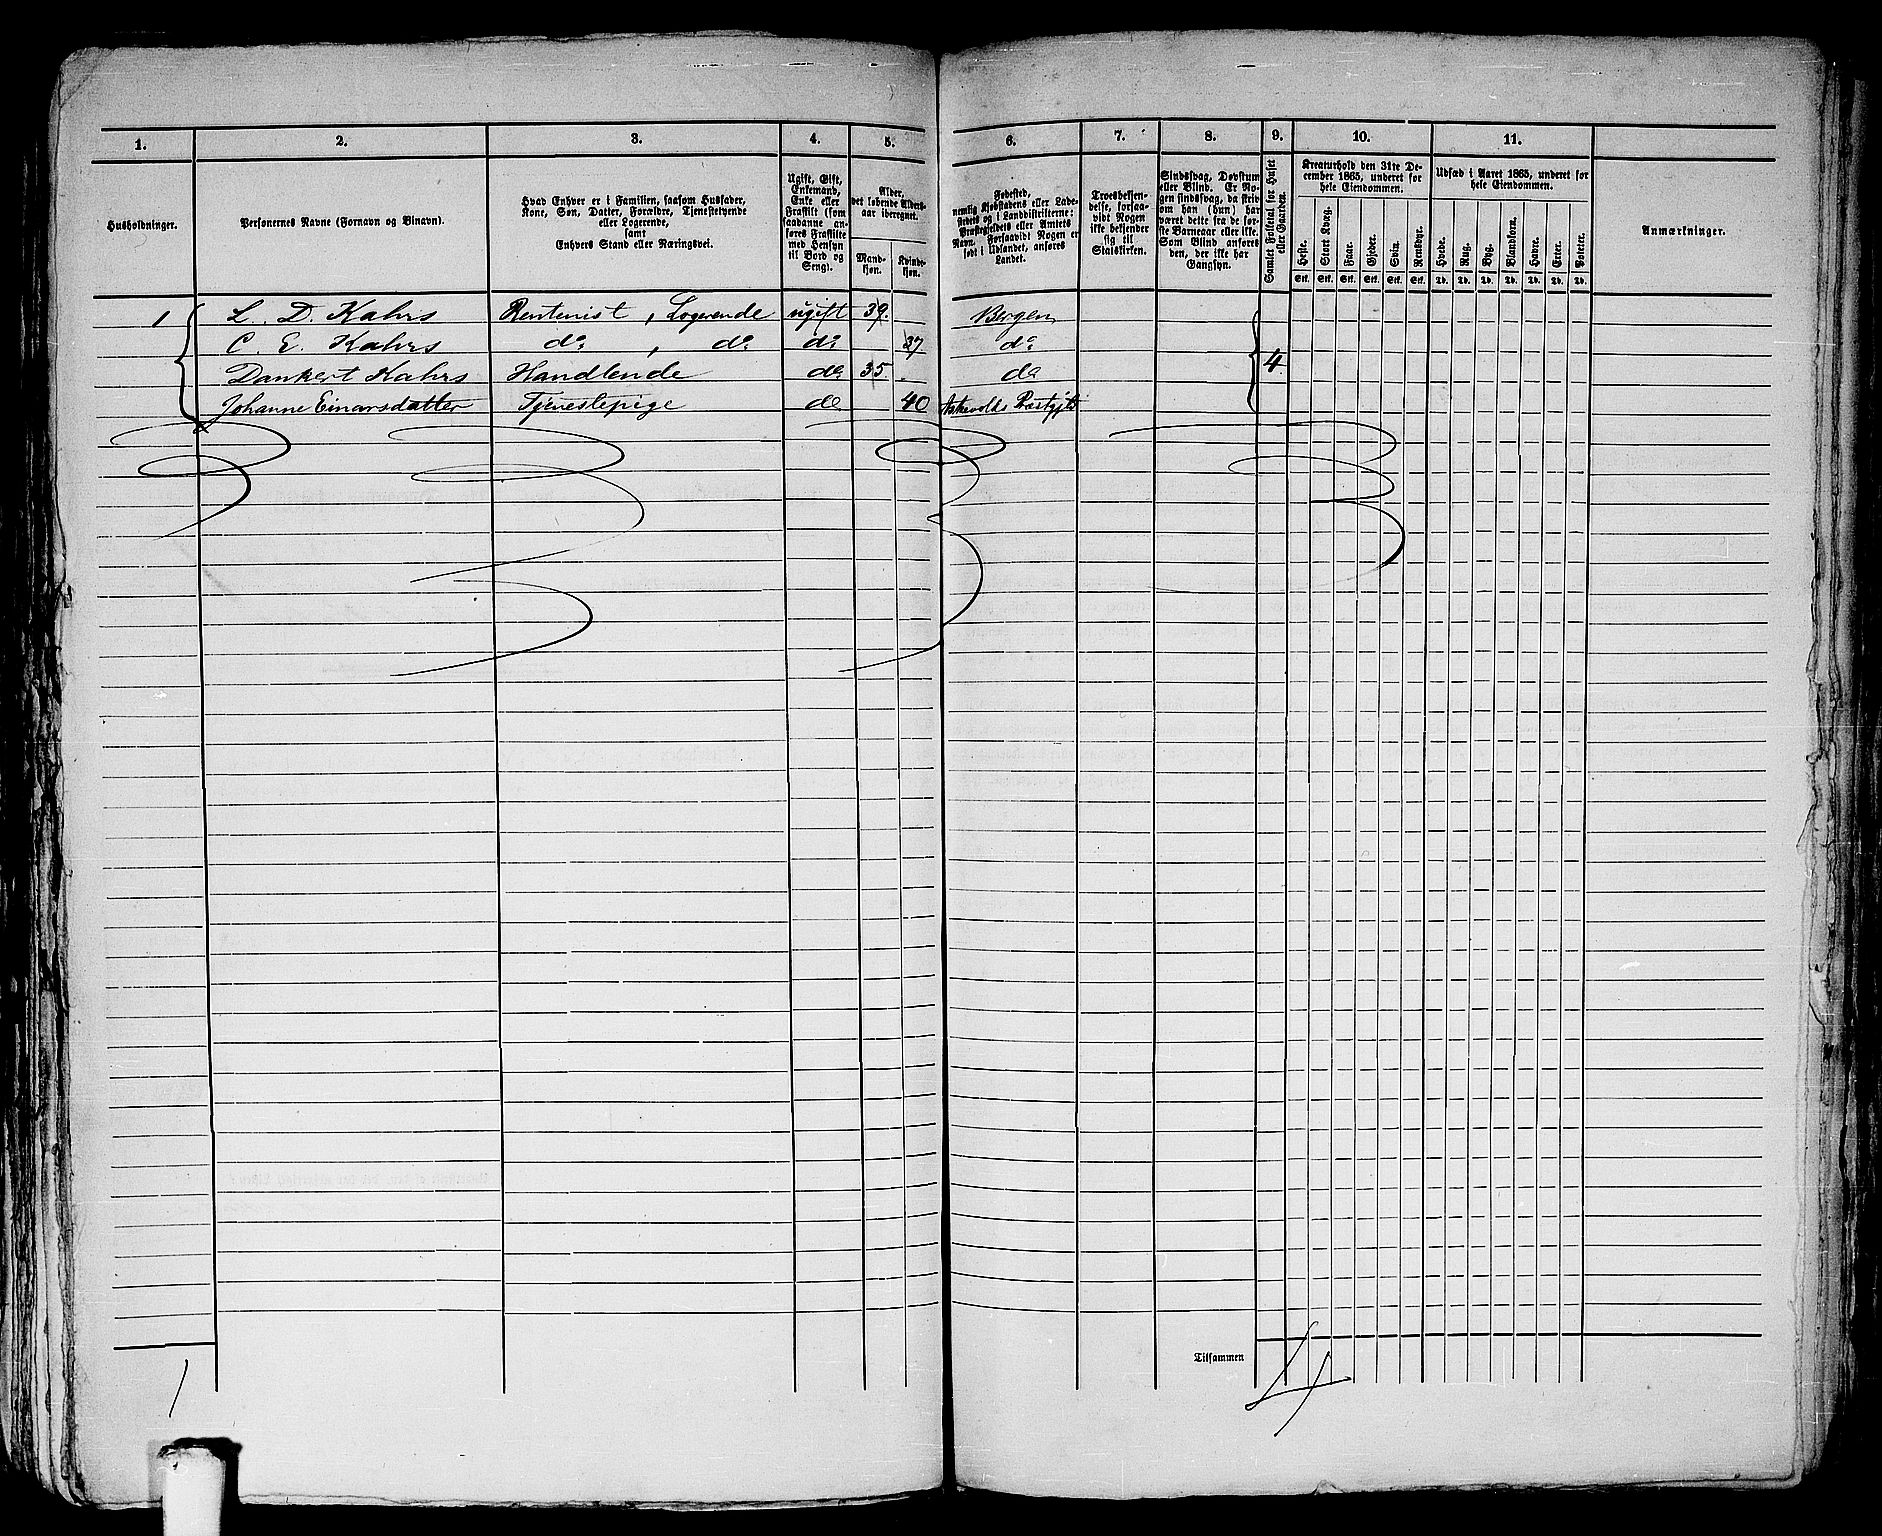 1. 2. 3. 4. 5. 6. 7. 8. 9. 10. 11.
Husholdninger.
Personernes Navne (Fornavn og Binavn).
Hvad Enhver er i Familien, saasom Husfader,
Kone, Søn, Datter, Forældre, Tjenestetyende
eller Logerende,
samt
Enhvers Stand eller Næringsvei.
Ugift, Gift,
Enkemand,
Enke eller
Fraskilt (som
saadanne an-
føres Fraskilte
med Hensyn
til Bord og
Seng).
Alder,
det løbende Alders-
aar iberegnet.
Mand-
kjøn.
Kvinde-
kjøn.
Fødested,
nemlig Kjøbstadens eller Lade-
stedets og i Landdistrikterne:
Præstegjeldets eller Amtets
Navn. Forsaavidt Nogen er
født i Udlandet, anføres
Landet.
Troesbekjen-
delse, forsaa-
vidt Nogen
ikke bekjender
sig til
Statskirken.
Sindssvag, Døvstum
eller Blind. Er No-
gen sindssvag, da skriv
om han (hun) har
været dette fra de før-
ste Barneaar eller ikke.
Som Blind anføres
den, der ikke har
Gangsyn.
Samlet Folketal for Huset
eller Gaarden.
Kreaturhold den 31te De-
cember 1865, underet for
hele Eiendommen.
Heste. Stort Kvæg. Faar. Gjeder. Svin. Rensdyr.
Stk. Stk. Stk. Stk. Stk. Stk.
Udsæd i Aaret 1865, underet for
hele Eiendommen.
Hvede. Rug. Byg. Blandkorn. Havre. Erter. Poteter.
Td. Td. Td. Td. Td. Td. Td.
Anmærkninger.
1 L. D. Kahrs Rentenist, Logerende ugift 39. Bergen
C. E. Kahrs do, do do 37 do
Dankert Kahrs Handlende do 35. do 4
Johanne Einarsdatter Tjenestepige do 40 Præstgjld
Tilsammen 4
1